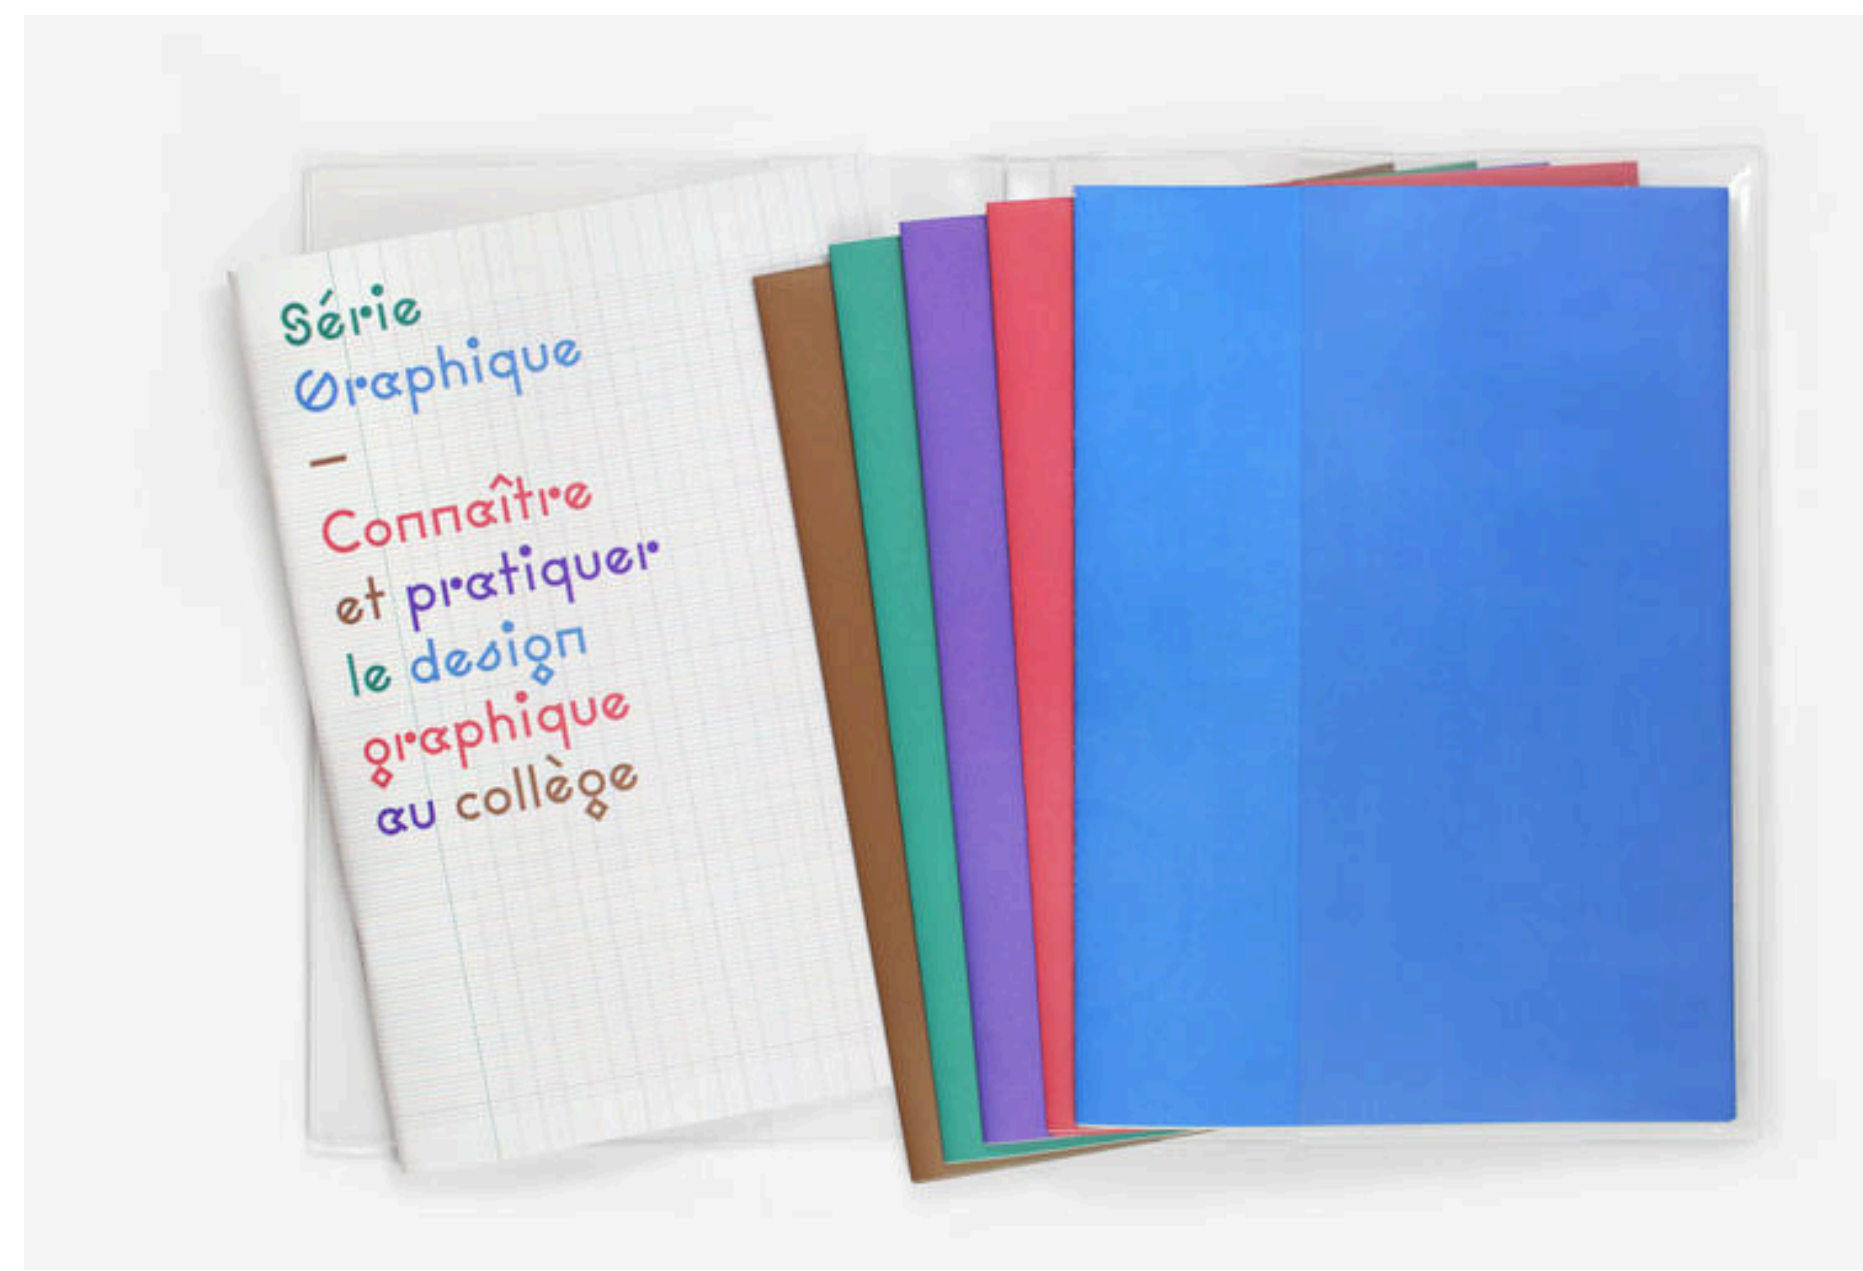 Série
Graphique
–
Connaître
et pratiquer
le design
graphique
au collège